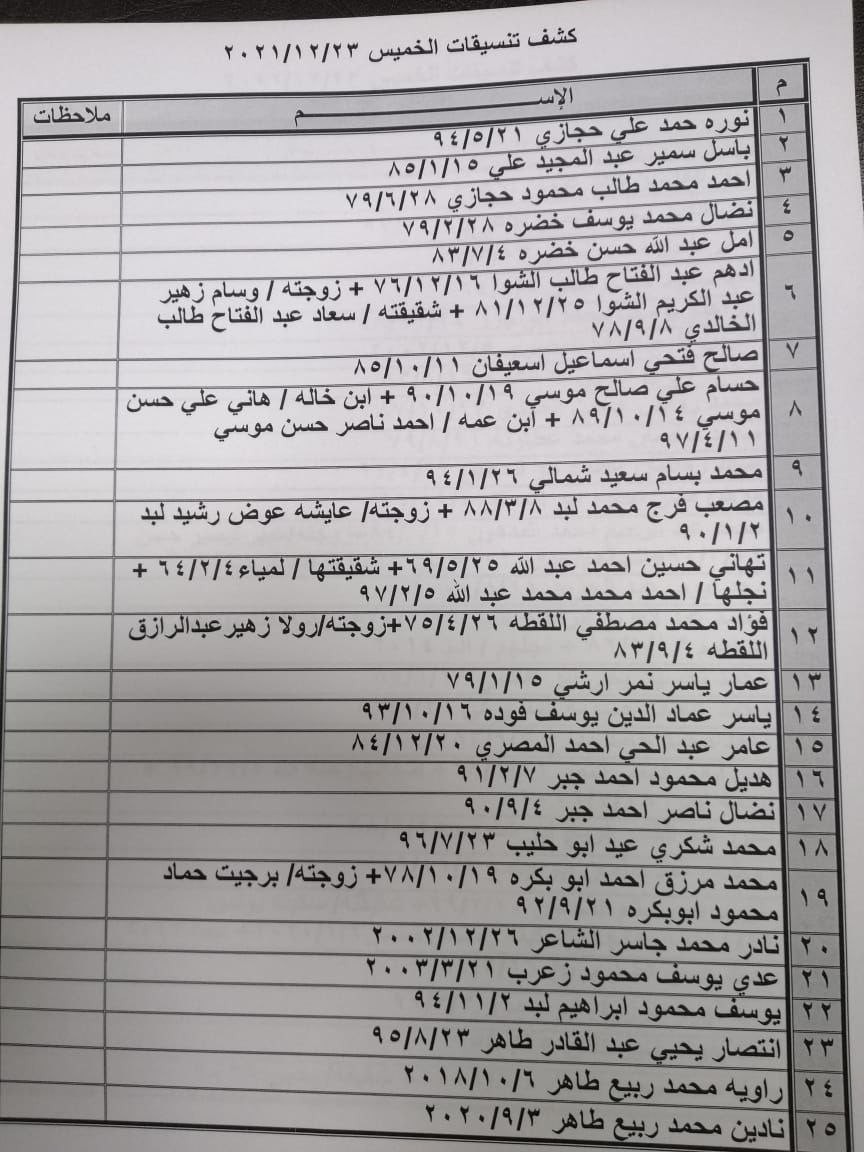 كشف تنسيقات الخميس ٢٠٢١/١٢/٢٣
م الإســـــــــــم ملاحظات
١ نوره حمد علي حجازي ٩٤/٥/٢١
٢ باسل سمير عبد المجيد علي ٨٥/١/١٥
٣ احمد محمد طالب محمود حجازي ٧٩/٦/٢٨
٤ نضال محمد يوسف خضره ٧٩/٢/٢٨
٥ امل عبد الله حسن خضره ٨٣/٧/٤
٦ ادهم عبد الفتاح طالب الشوا ٧٦/١٢/١٦ + زوجته / وسام زهير
عبد الكريم الشوا ٨١/١٢/٢٥ + شقيقته / سعاد عبد الفتاح طالب
الخالدي ٧٨/٩/٨
٧ صالح فتحي اسماعيل اسعيفان ٨٥/١٠/١١
٨ حسام علي صالح موسي ٩٠/١٠/١٩ + ابن خاله / هاني علي حسن
موسي ٨٩/١٠/١٤ + ابن عمه / احمد ناصر حسن موسي
٩٧/٤/١١
٩ محمد بسام سعيد شمالي ٩٤/١/٢٦
١٠ مصعب فرج محمد لبد ٨٨/٣/٨ + زوجته/ عايشه عوض رشيد لبد
٩٠/١/٢
١١ تهاني حسين احمد عبد الله ٦٩/٥/٢٥+ شقيقتها / لمياء ٦٤/٢/٤ +
نجلها / احمد محمد محمد عبد الله ٩٧/٢/٥
١٢ فؤاد محمد مصطفي اللقطه ٧٥/٤/٢٦+زوجته/رولا زهيرعبدالرازق
اللقطه ٨٣/٩/٤
١٣ عمار ياسر نمر ارشي ٧٩/١/١٥
١٤ ياسر عماد الدين يوسف فوده ٩٣/١٠/١٦
١٥ عامر عبد الحي احمد المصري ٨٤/١٢/٢٠
١٦ هديل محمود احمد جبر ٩١/٢/٧
١٧ نضال ناصر احمد جبر ٩٠/٩/٤
١٨ محمد شكري عيد ابو حليب ٩٦/٧/٢٣
١٩ محمد مرزق احمد ابو بكره ٧٨/١٠/١٩+ زوجته/ برجيت حماد
محمود ابوبكره ٩٢/٩/٢١
٢٠ نادر محمد جاسر الشاعر ٢٠٠٢/١٢/٢٦
٢١ عدي يوسف محمود زعرب ٢٠٠٣/٣/٢١
٢٢ يوسف محمود ابراهيم لبد ٩٤/١١/٢
٢٣ انتصار يحيي عبد القادر طاهر ٩٥/٨/٢٣
٢٤ راويه محمد ربيع طاهر ٢٠١٨/١٠/٦
٢٥ نادين محمد ربيع طاهر ٢٠٢٠/٩/٣